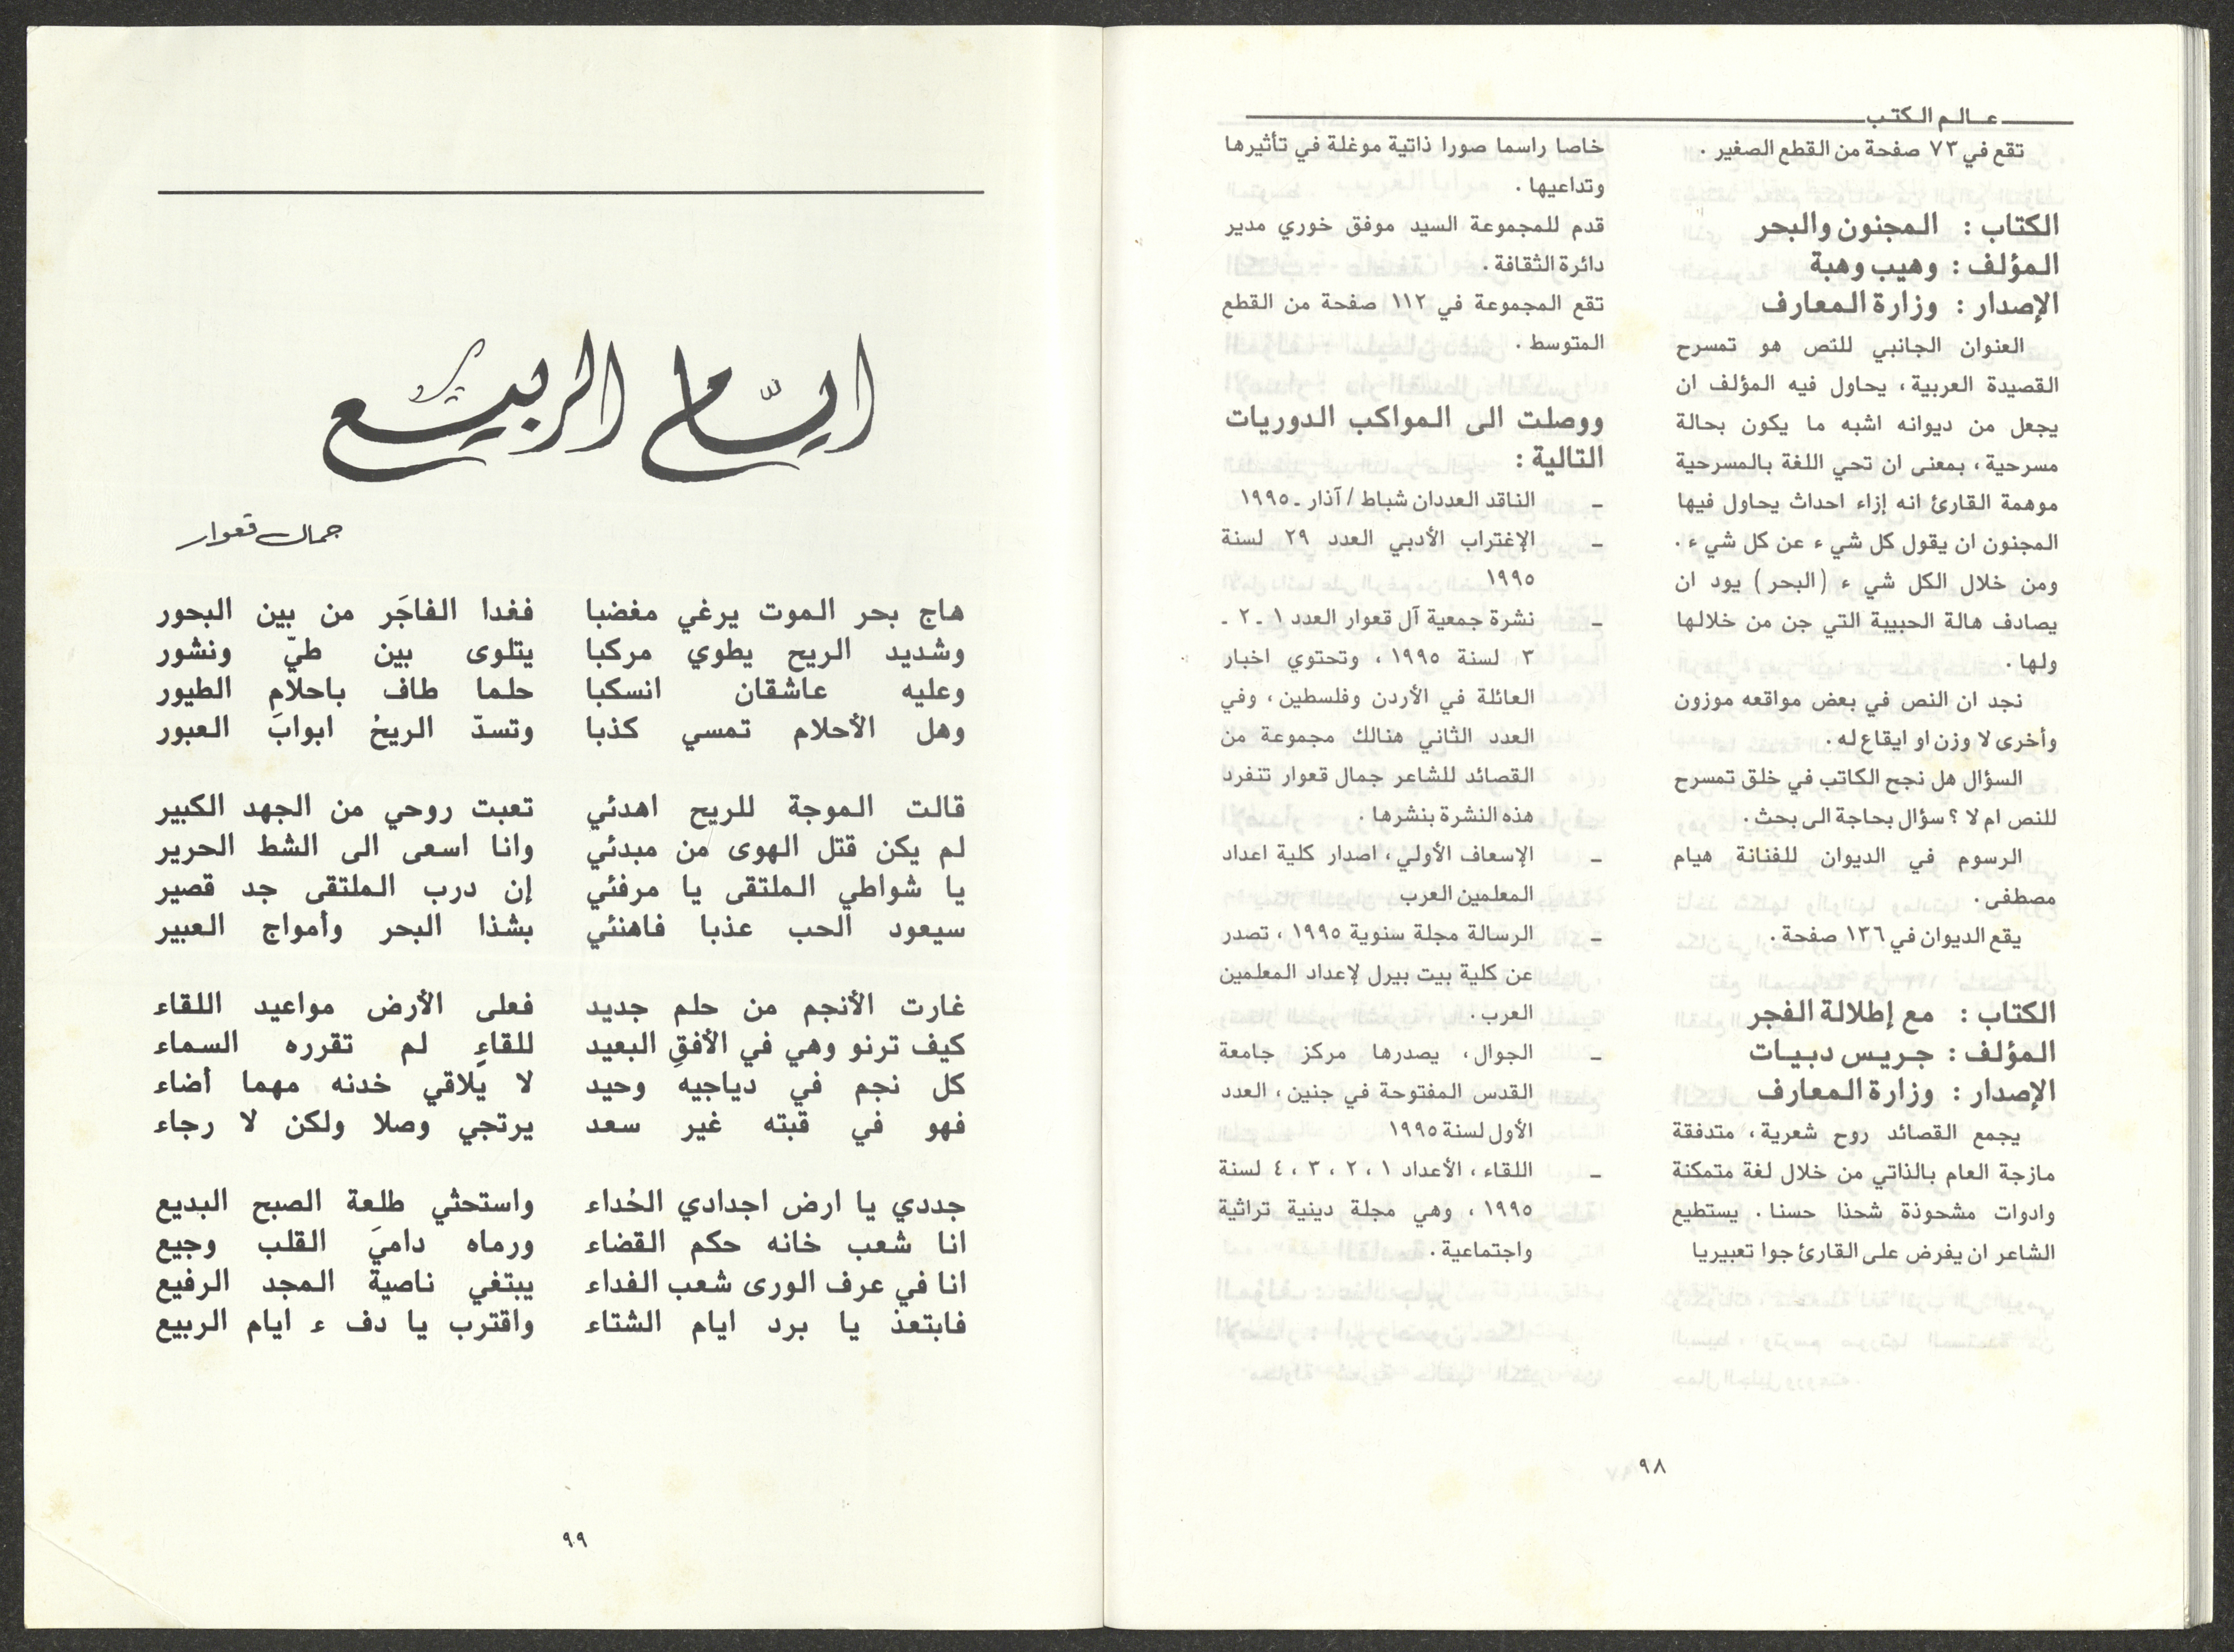 عـالـم الـكتـب
تقع في ٧٣ صفحة من القطع الصغير .
الكتاب : المجنون والبحر
المؤلف : وهيب وهبة
الإصدار : وزارة المعارف
العنوان الجانبي للنص هو تمسرح
القصيدة العربية ، يحاول فيه المؤلف ان
يجعل من ديوانه اشبه ما يكون بحالة
مسرحية ، بمعنى ان تحي اللغة بالمسرحية
موهمة القارئ انه إزاء احداث يحاول فيها
المجنون ان يقول كل شيء عن كل شيء .
ومن خلال الكل شيء (البحر) يود ان
يصادف هالة الحبيبة التي جن من خلالها
ولها .
نجد ان النص في بعض مواقعه موزون
وأخرى لا وزن او ايقاع له .
السؤال هل نجح الكاتب في خلق تمسرح
للنص ام لا ؟ سؤال بحاجة الى بحث .
الرسوم في الديوان للفنانة هيام
مصطفى .
يقع الديوان في ١٣٦ صفحة .
الكتاب : مع إطلالة الفجر
المؤلف : جريس دبيات
الإصدار : وزارة المعارف
يجمع القصائد روح شعرية ، متدفقة
مازجة العام بالذاتي من خلال لغة متمكنة
وادوات مشحوذة شحذا حسنا . يستطيع
الشاعر ان يفرض على القارئ جوا تعبيريا
خاصا راسما صورا ذاتية موغلة في تأثيرها
وتداعيها .
قدم للمجموعة السيد موفق خوري مدير
دائرة الثقافة .
تقع المجموعة في ١١٢ صفحة من القطع
المتوسط .
ووصلت الى المواكب الدوريات
التالية :
ـ الناقد العددان شباط / آذار ـ ١٩٩٥
ـ الإغتراب الأدبي العدد ٢٩ لسنة
١٩٩٥
ـ نشرة جمعية آل قعوار العدد ١ ـ ٢ ـ
٣ لسنة ١٩٩٥ ، وتحتوي اخبار
العائلة في الأردن وفلسطين ، وفي
العدد الثاني هنالك مجموعة من
القصائد للشاعر جمال قعوار تنفرد
هذه النشرة بنشرها .
ـ الإسعاف الأولي ، اصدار كلية اعداد
المعلمين العرب
ـ الرسالة مجلة سنوية ١٩٩٥ ، تصدر
عن كلية بيت بيرل لإعداد المعلمين
العرب .
ـ الجوال ، يصدرها مركز جامعة
القدس المفتوحة في جنين ، العدد
الأول لسنة ١٩٩٥
ـ اللقاء ، الأعداد ١ ، ٢ ، ٣ ، ٤ لسنة
١٩٩٥ ، وهي مجلة دينية تراثية
واجتماعية .
٩٨
ايّام الربيع
جمال قعوار
هاج بحر الموت يرغي مغضبا فغدا الفاجَر من بين البحور
وشديد الريح يطوي مركبا يتلوى بين طيّ ونشور
وعليه عاشقان انسكبا حلما طاف باحلامِ الطيور
وهل الأحلام تمسي كذبا وتسدّ الريحُ ابوابَ العبور
قالت الموجة للريح اهدئي تعبت روحي من الجهد الكبير
لم يكن قتل الهوى من مبدئي وانا اسعى الى الشط الحرير
يا شواطي الملتقى يا مرفئي إن درب الملتقى جد قصير
سيعود الحب عذبا فاهنئي بشذا البحر وأمواج العبير
غارت الأنجم من حلم جديد فعلى الأرض مواعيد اللقاء
كيف ترنو وهي في الأفقِ البعيد للقاءٍ لم تقرره السماء
كل نجم في دياجيه وحيد لا يلاقي خدنه مهما أضاء
فهو في قبته غير سعد يرتجي وصلا ولكن لا رجاء
جددي يا ارض اجدادي الحُداء واستحثي طلعة الصبح البديع
انا شعب خانه حكم القضاء ورماه داميَ القلب وجيع
انا في عرف الورى شعب الفداء يبتغي ناصية المجد الرفيع
فابتعدْ يا برد ايام الشتاء واقترب يا دفء ايام الربيع
٩٩